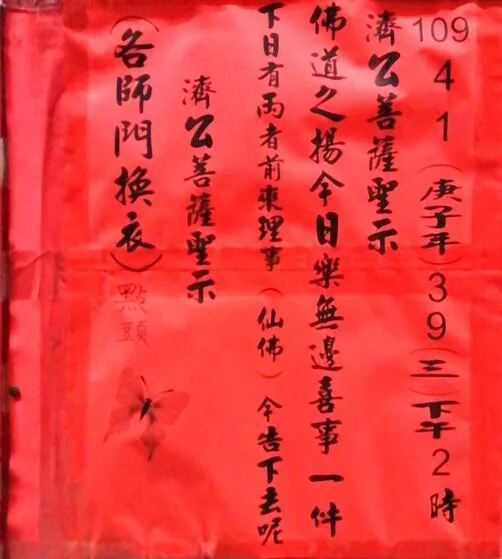 109 4 1（庚子年）3 9（三）下午2時
濟公菩薩聖示
佛道之揚今日樂無邊喜事一件
下日有兩者前來理事（仙佛）今告下去呢
濟公菩薩聖示
（各師門換衣）點頭